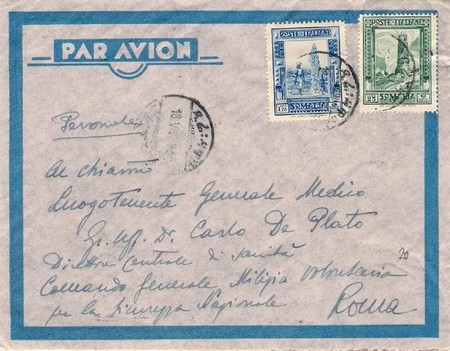 PAR AVION
POSTE ITALIANE
SOMALIA
POSTE ITALIANE
25 SOMALIA
18. VII
Personale
Al chiar.mo
Luogotenente Generale Medico
Gr. Uff. Dr. Carlo De Plato
20
Direttore Centrale di Sanità
Comando Generale Milizia Volontaria
per la Sicurezza Nazionale
Roma